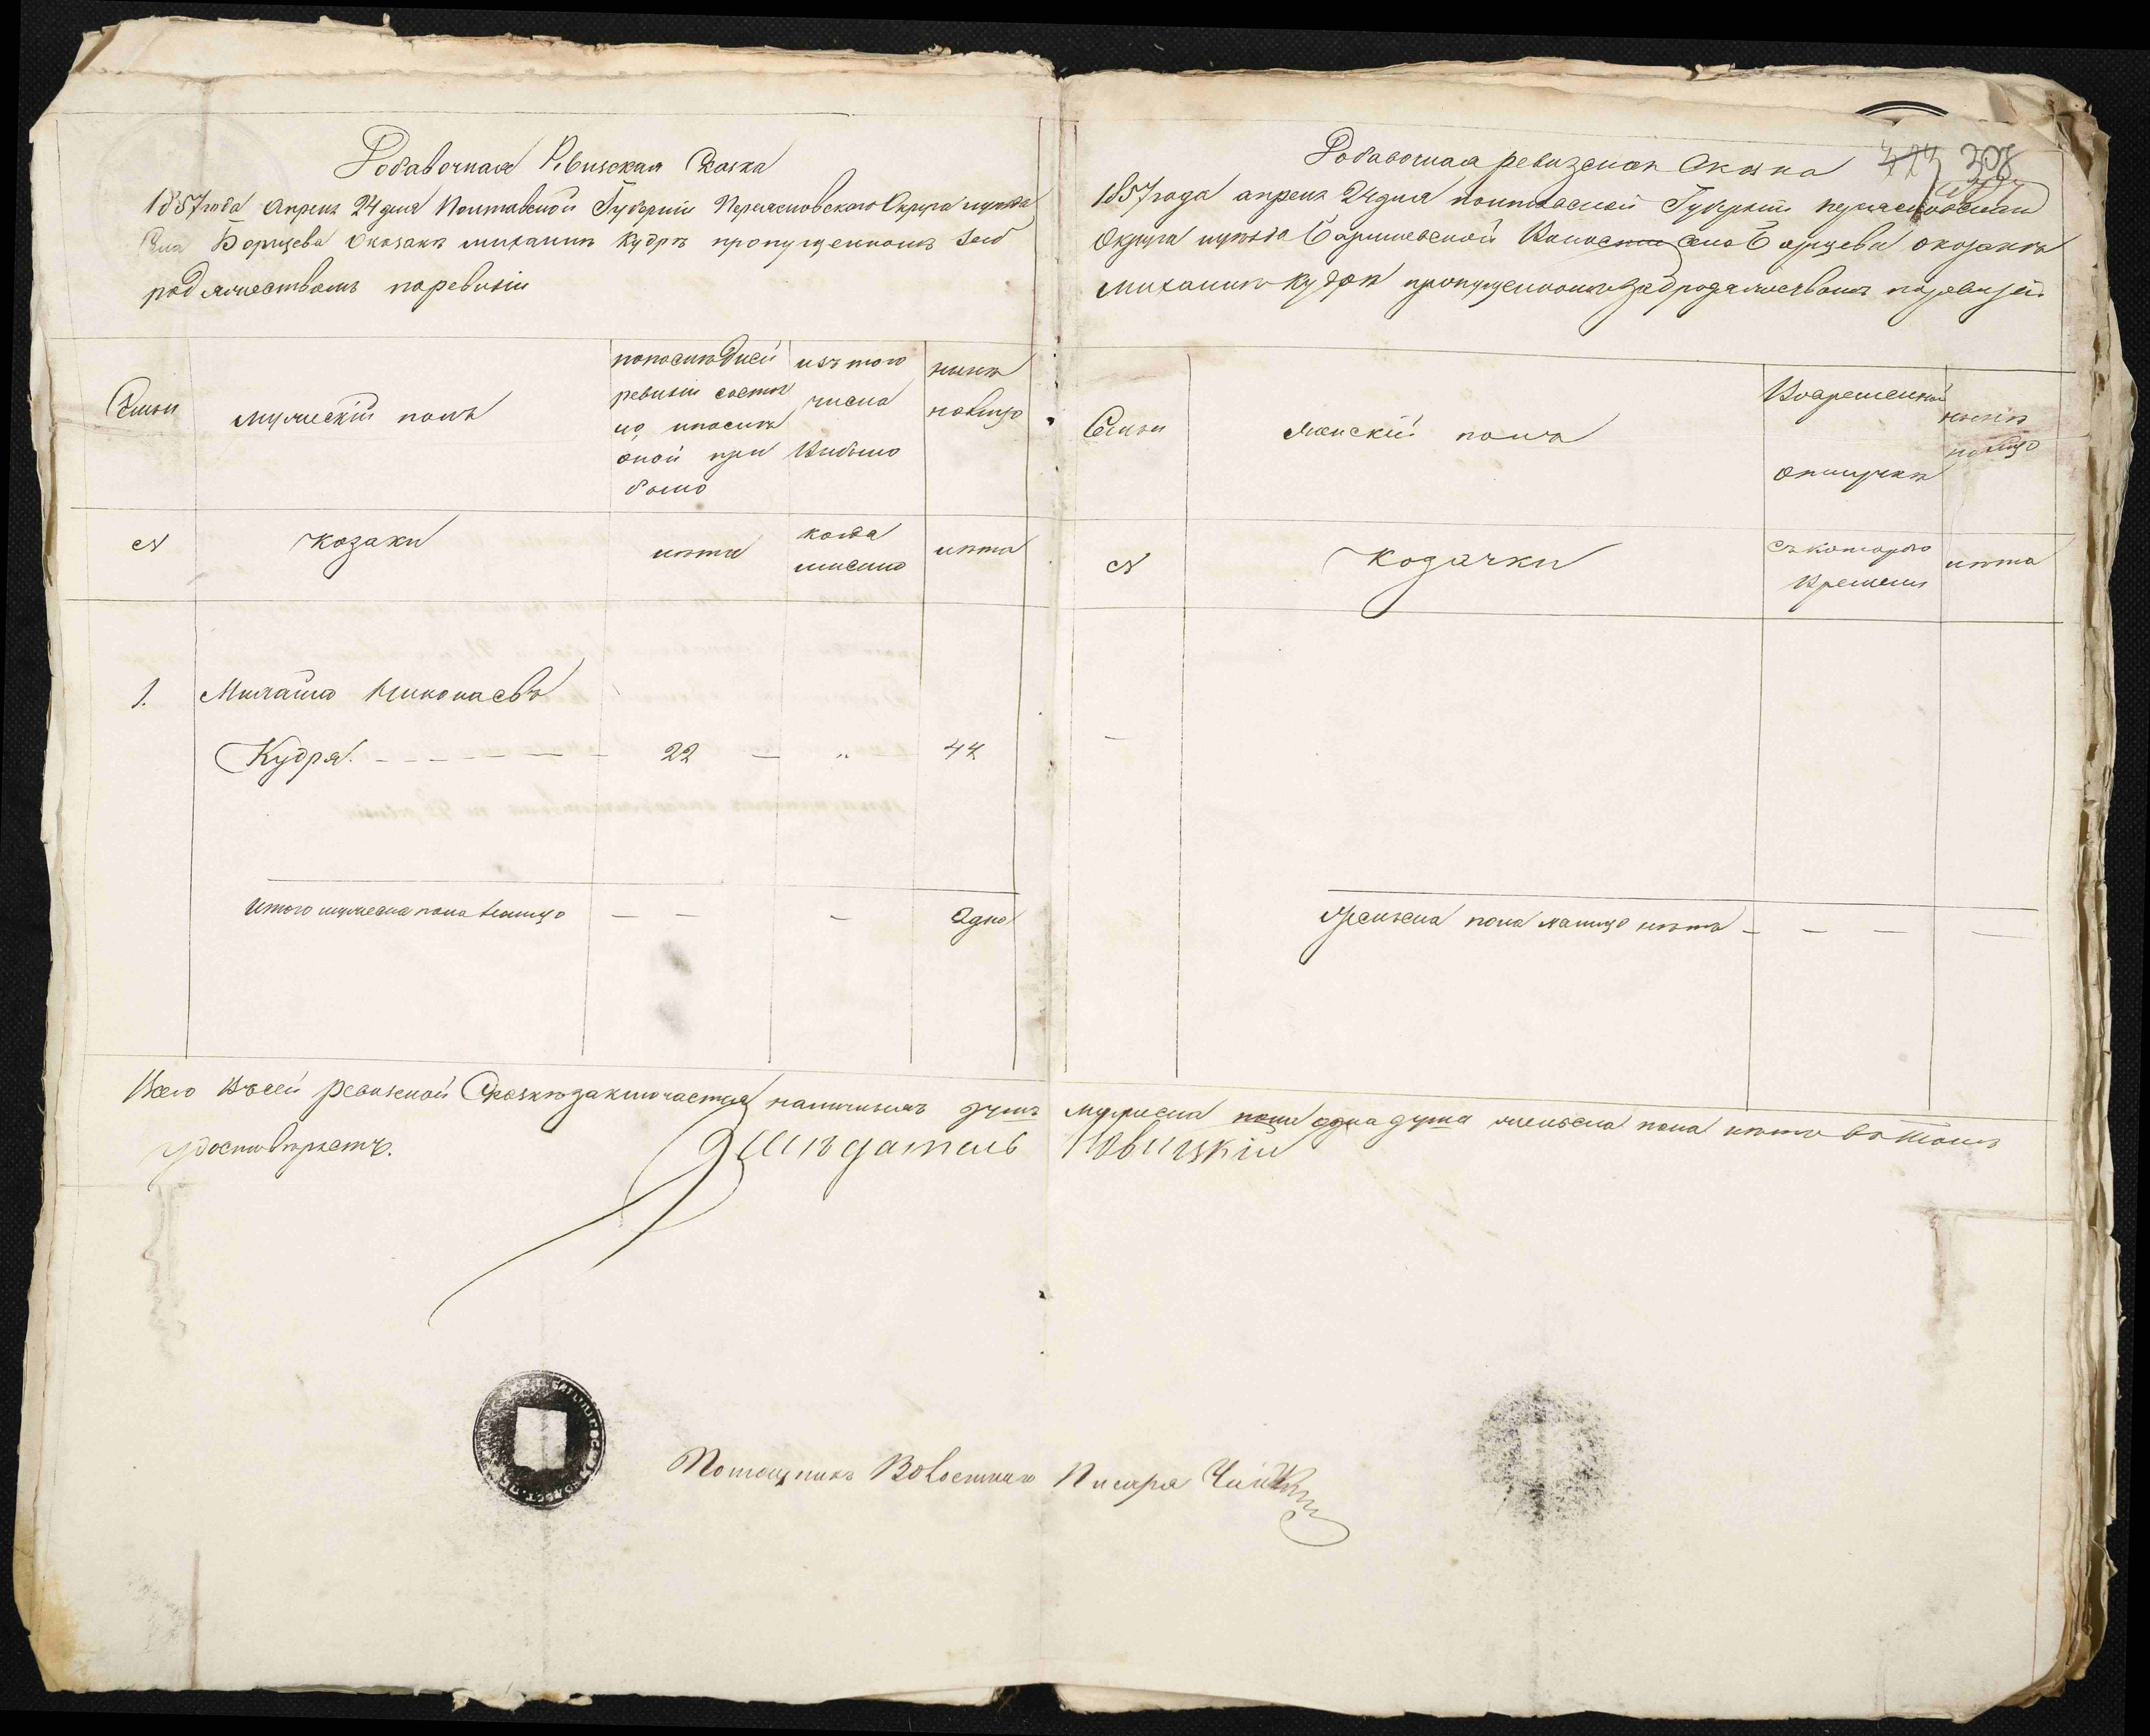 Добавочная Ревизская Сказка
1857 года Апреля 24 дня Полтавской Губерніи Переясловского Округа иуезда
Села Борщева Оказакѣ михаилѣ Кудрѣ пропущенномъ за
род ячествомъ поревизіи
Семьи
мужескій полъ
попоследней ревизіи состоя
ло, ипослѣ
оной при
было
изътого
числа
Выбыло
нынѣ
налицо
№
Козаки
лета
когда
имено
лета
1.
Михайло Николаевъ
Кудря. — — — — — 22 — „ 44
Итого мужеска пола налицо — — — Одна
Добавочная ревизская Сказка
424 308
1857 года апреля 24 дня полтавской Губерніи переясловскаго
Округа иуезда Баришевской Волости села Борщева оказакѣ
михаилѣ Кудрѣ пропущенномъ зародячествомъ поревизіи
Семьи
женскій полъ
Вовременной
отлучкѣ
нынѣ
налицо
№
Козачки
съкоторого
Времени
лета
—
Женска пола налицо нетъ — — — —
Всего Всей ревизской Сказкѣ заключается наличныхъ душъ мужеска пола одна душа женска пола нетъ вътомъ
удостоверяетъ.
Помощникъ Волостнаго Писаря